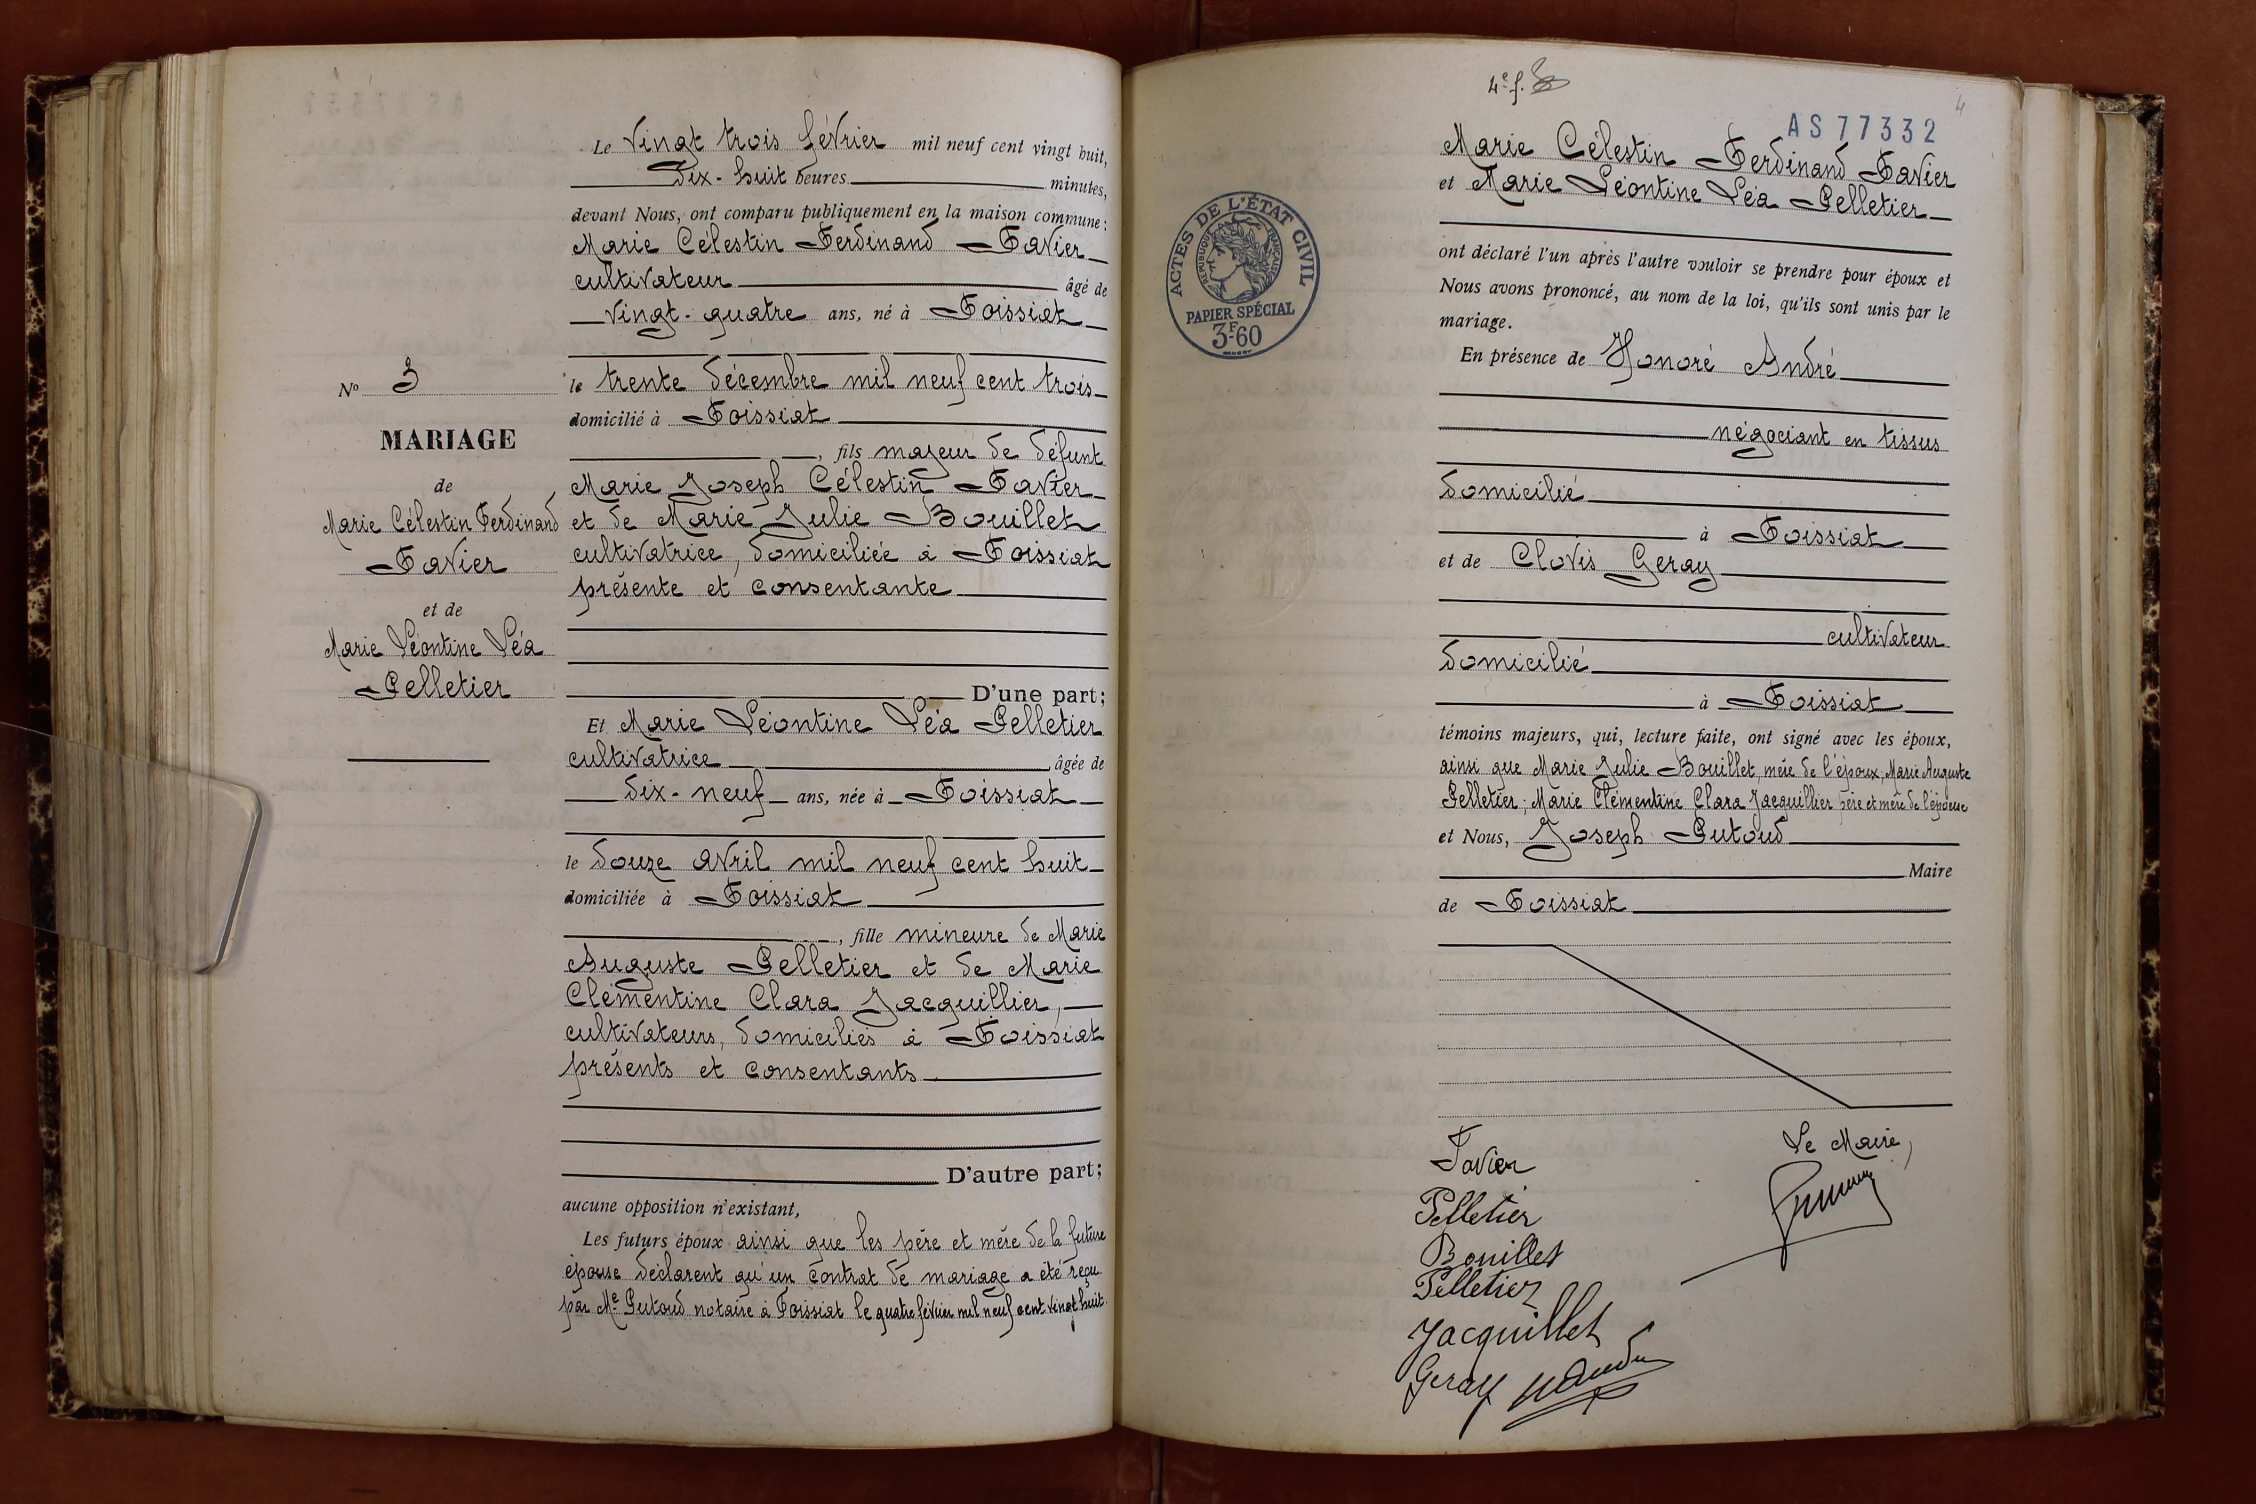 Le vingt trois février mil neuf cent vingt huit,
dix-huit heures minutes,
devant Nous, ont comparu publiquement en la maison commune :
Marie Célestin Ferdinand Favier
cultivateur âgé de
vingt-quatre ans, né à Foissiat
le trente décembre mil neuf cent trois
domicilié à Foissiat
, fils majeur de défunt
Marie Joseph Célestin Favier
et de Marie Julie Bouillet
cultivatrice, domiciliée à Foissiat
présente et consentante
D'une part;
Et Marie Léontine Léa Pelletier
cultivatrice âgée de
dix-neuf ans, née à Foissiat
le douze avril mil neuf cent huit
domiciliée à Foissiat
, fille mineure de Marie
Auguste Pelletier et de Marie
Clémentine Clara Jacquillier,
cultivateurs, domiciliés à Foissiat
présents et consentants
D'autre part;
aucune opposition n'existant,
Les futurs époux ainsi que les père et mère de la future
épouse déclarent qu'un contrat de mariage a été reçu
par Me Putoud notaire à Foissiat le quatre février mil neuf cent vingt huit.
No 3
MARIAGE
de
Marie Célestin Ferdinand
Favier
et de
Marie Léontine Léa
Pelletier
4e f.
4
AS77332
ACTES DE L'ÉTAT CIVIL
RÉPUBLIQUE FRANÇAISE
PAPIER SPÉCIAL
3F60
Marie Célestin Ferdinand Favier
et Marie Léontine Léa Pelletier
ont déclaré l'un après l'autre vouloir se prendre pour époux et
Nous avons prononcé, au nom de la loi, qu'ils sont unis par le
mariage.
En présence de Honoré André
négociant en tissus
domicilié
à Foissiat
et de Clovis Geray
cultivateur
domicilié
à Foissiat
témoins majeurs, qui, lecture faite, ont signé avec les époux,
ainsi que Marie Julie Bouillet, mère de l'époux; Marie Auguste
Pelletier; Marie Clémentine Clara Jacquillier père et mère de l'épouse
et Nous, Joseph Putoud
Maire
de Foissiat
Le Maire,
Favier
Pelletier
Bouillet
Pelletier
Jacquillet
Geray